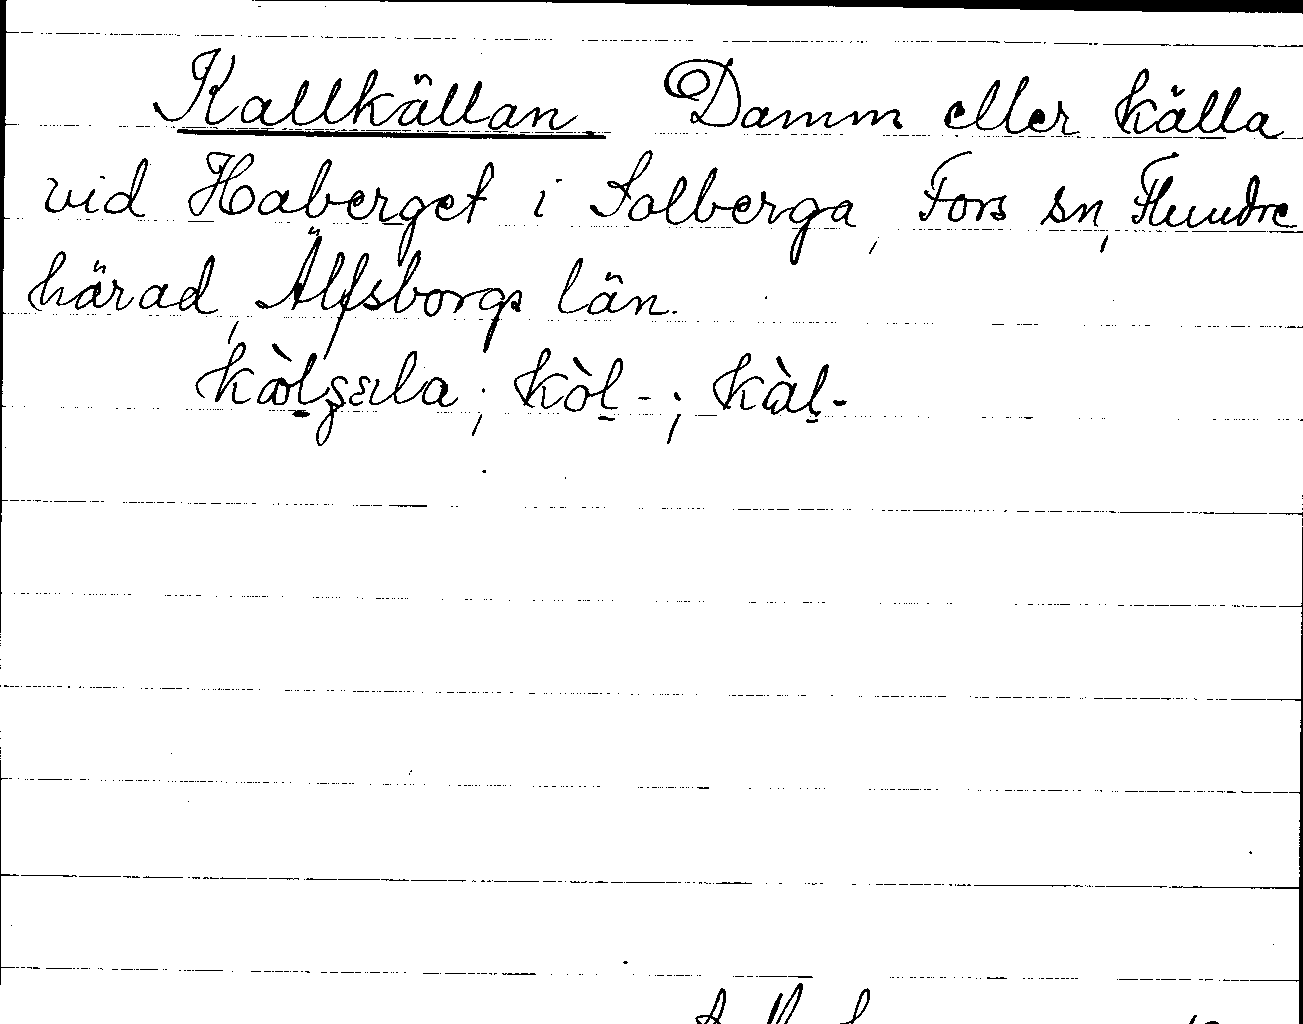 Kallkällan. Damm eller källa
vid Haberget i Solberga, Fors sn, Flundre
härad, Älfsborgs län.
kòl̠ʂɛla; kòl̠-; kàl̠-